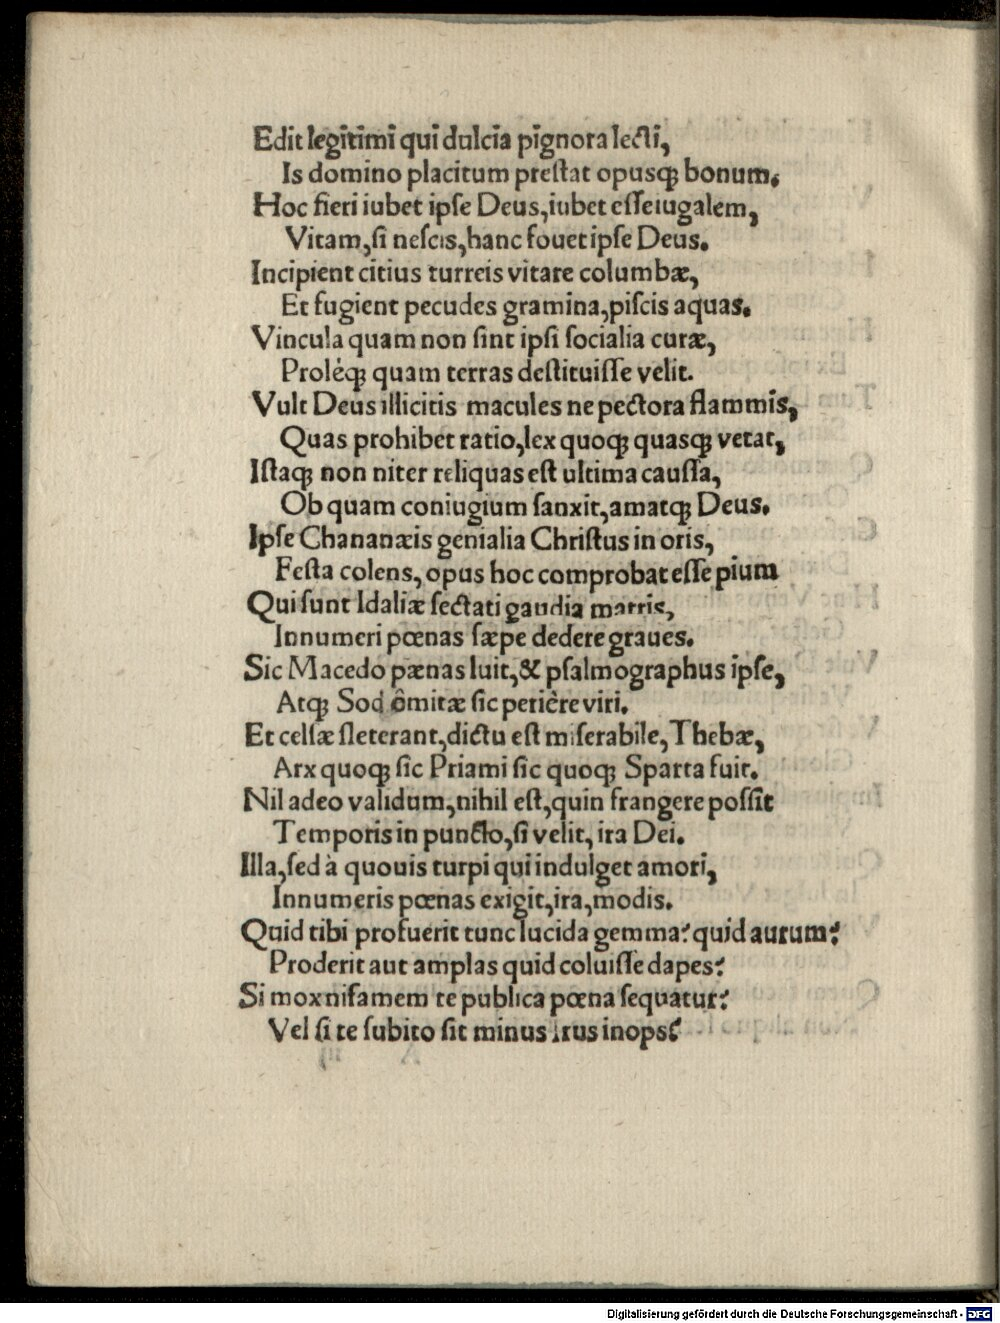 Edit legitimi qui dulcia pignora lecti,
Is domino placitum preſtat opusqꝫ bonum.
Hoc fieri iubet ipſe Deus, iubet eſſe iugalem,
Vitam, ſi neſcis, hanc fouet ipſe Deus.
Incipient citius turreis vitare columbæ,
Et fugient pecudes gramina, piſcis aquas.
Vincula quam non ſint ipſi ſocialia curæ,
Proléqꝫ quam terras deſtituiſſe velit.
Vult Deus illicitis macules ne pectora flammis,
Quas prohibet ratio, lex quoqꝫ quasqꝫ vetat,
Iſtaqꝫ non niter reliquas eſt ultima cauſſa,
Ob quam coniugium ſanxit, amatqꝫ Deus.
Ipſe Chananæis genialia Chriſtus in oris,
Feſta colens, opus hoc comprobat eſſe pium
Qui ſunt Idaliæ ſectati gaudia matris,
Innumeri pœnas ſæpe dedere graues.
Sic Macedo pænas luit, & pſalmographus ipſe,
Atqꝫ Sod ômitæ ſic perière viri.
Et celſæ ſleterant, dictu eſt miſerabile, Thebæ,
Arx quoqꝫ ſic Priami ſic quoqꝫ Sparta fuit.
Nil adeo validum, nihil eſt, quin frangere poſſit
Temporis in puncto, ſi velit, ira Dei.
Illa, ſed à quouis turpi qui indulget amori,
Innumeris pœnas exigit, ira, modis.
Quid tibi profuerit tunc lucida gemma? quid aurum?
Proderit aut amplas quid coluiſſe dapes?
Si mox nifamem te publica pœna ſequatur?
Vel ſi te ſubito ſit minus irus inops?
Digitalisierung gefördert durch die Deutsche Forschungsgemeinschaft - DFG